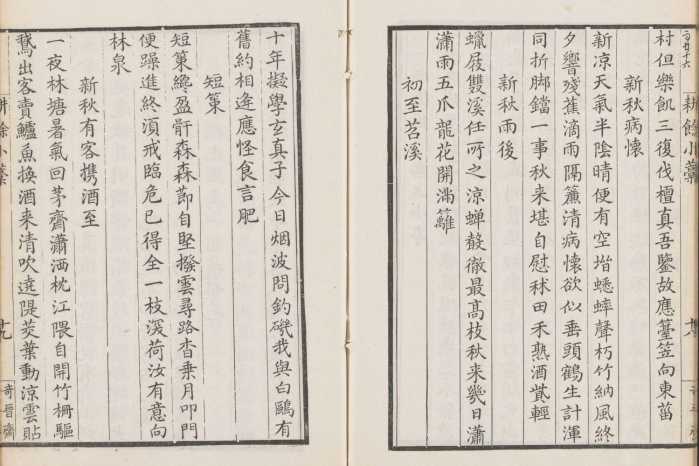 村但樂飢三復伐檀真吾鑒故應薹笠向東菑
新秋病懷
新凉天氣半陰晴便有空堦蟋蟀聲朽竹納風終
夕響殘蕉滴雨隔簾清病懷欲似垂頭鶴生計渾
同折脚鐺一事秋来堪自慰秫田禾熟酒貲輕
新秋雨後
蠟屐雙溪任所之涼蟬聲徹最高枝秋来幾日瀟
瀟雨五爪龍花開滿籬
初至苕溪
耕餘小藁
十年擬學玄真子今日烟波問釣磯我與白鷗有
舊約相逢應怪食言肥
短策
短策纔盈骭森森節自堅撥雲尋路杳乗月叩門
便躁進終湏戒臨危已得全一枝深荷汝有意向
林泉
新秋有客携酒至
一夜林塘暑氣回茅齋瀟洒枕江隈自開竹柵驅
鵞出客賣鱸魚換酒来清吹遶隄茭葉動涼雲貼
耕餘小藁
十九
奇晉齋